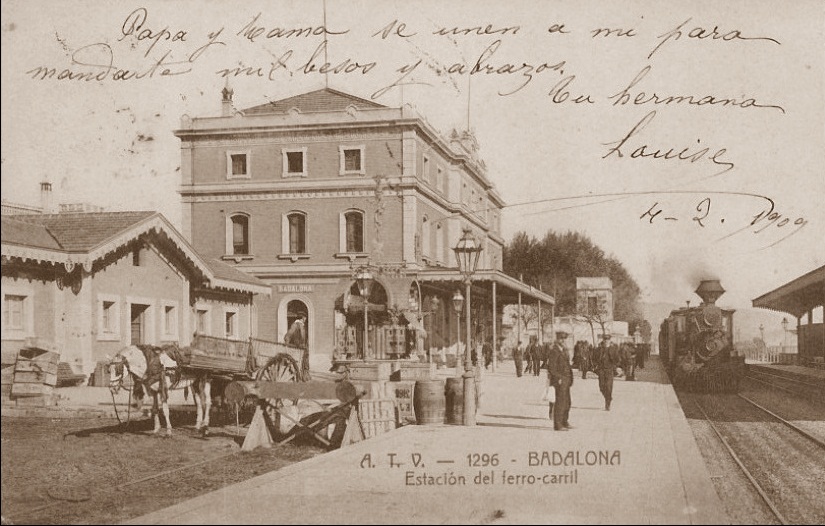 Papa y Mama se unen a mi para
mandarte mil besos y abrazos.
Tu hermana
Louise
4-2. 1909
BADALONA
A. T. V. — 1296 - BADALONA
Estación del ferro-carril